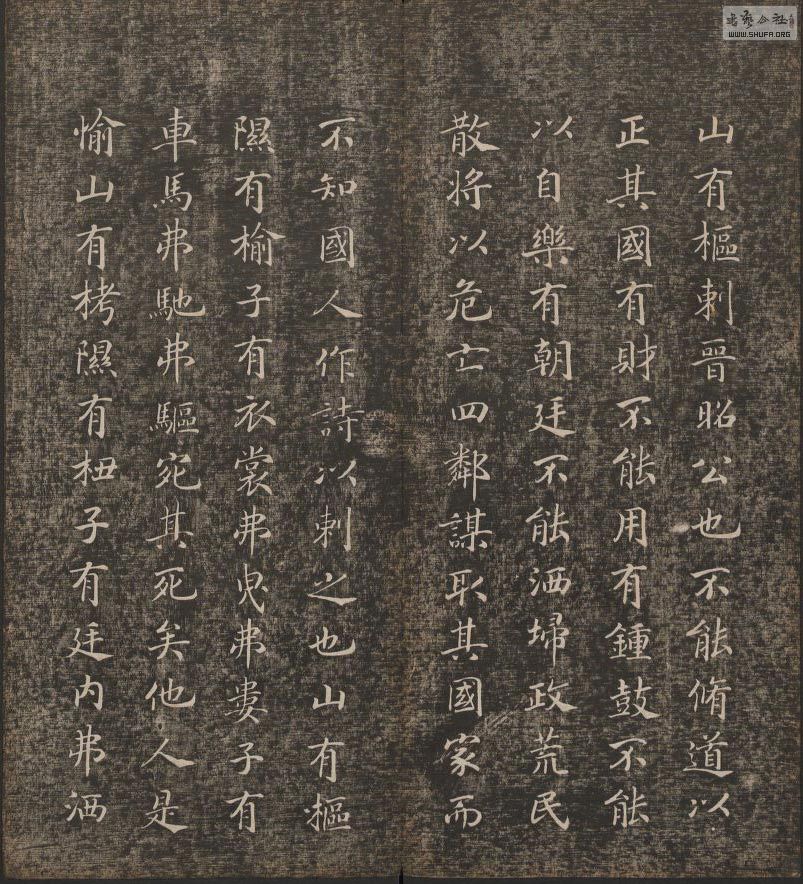 山有樞刺晉昭公也不能脩道以
正其國有財不能用有鍾鼓不能
以自樂有朝廷不能洒埽政荒民
散將以危亡四鄰謀取其國家而
不知國人作詩以刺之也山有樞
隰有榆子有衣裳弗曳弗婁子有
車馬弗馳弗驅宛其死矣他人是
愉山有栲隰有杻子有廷内弗洒
書藝公社
WWW.SHUFA.ORG